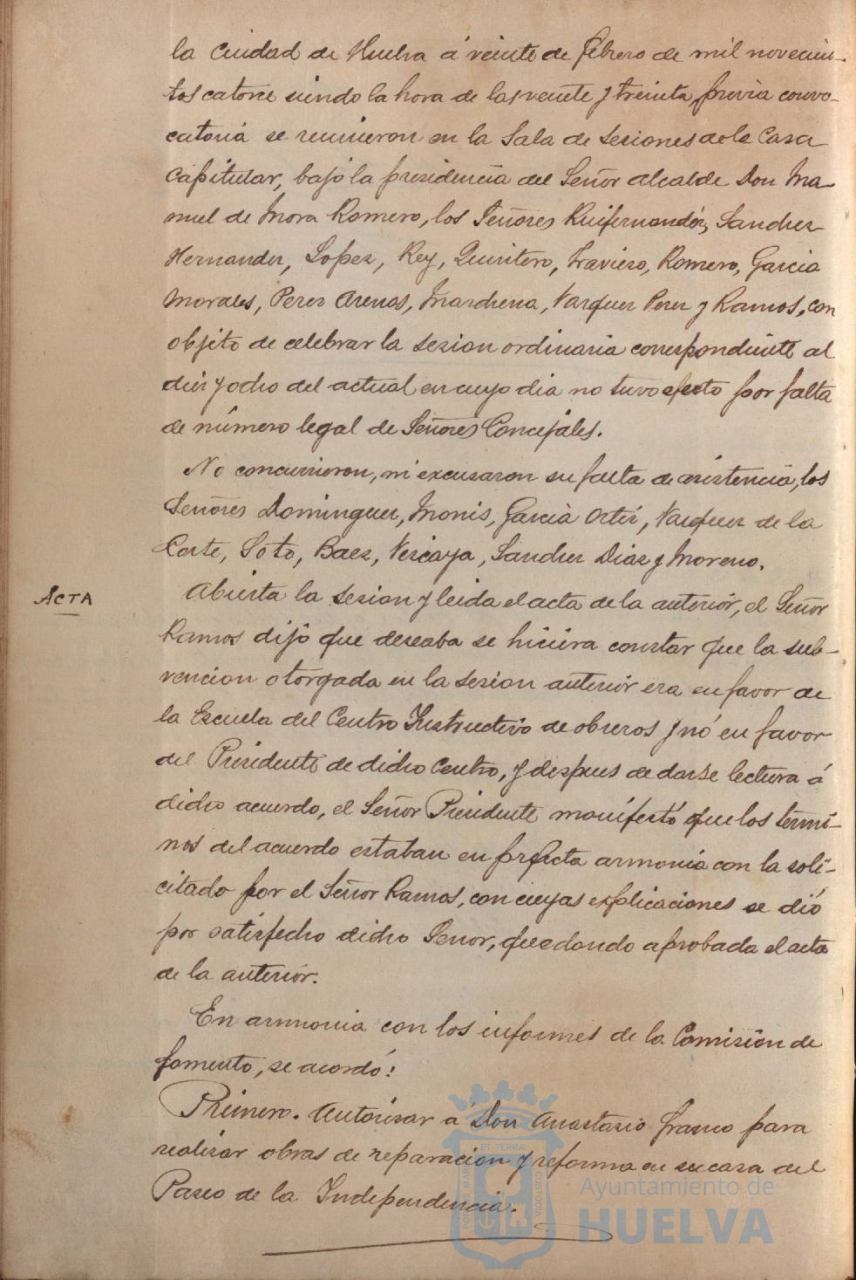 la Ciudad de Huelva á veinte de febrero de mil novecien-
tos catorce siendo la hora de las veinte y treinta, previa convo-
catoria se reunieron en la Sala de Sesiones de la Casa
Capitular, bajo la presidencia del Señor Alcalde Don Ma-
nuel de Mora Romero, los Señores Ruifernandez, Sanchez
Hernandez, Lopez, Rey, Quintero, Travieso, Romero, Garcia
Morales, Perez Arenas, Marchena, Vazquez Perez y Ramos, con
objeto de celebrar la sesion ordinaria correspondiente al
diez y ocho del actual en cuyo dia no tuvo efecto por falta
de número legal de Señores Concejales.
No concurrieron, ni excusaron su falta de asistencia, los
Señores Dominguez, Monis, Garcia Ortiz, Vazquez de la
Corte, Soto, Baez, Vizcaya, Sanchez Diaz y Moreno.
ACTA
Abierta la sesion y leida el acta de la anterior, el Señor
Ramos dijo que deseaba se hiciera constar que la sub-
vencion otorgada en la sesion anterior era en favor de
la Escuela del Centro Instructivo de obreros y nó en favor
del Presidente de dicho Centro, y despues de darse lectura á
dicho acuerdo, el Señor Presidente manifestó que los termi-
nos del acuerdo estaban en perfecta armonia con la soli-
citado por el Señor Ramos, con cuyas explicaciones se dió
por satisfecho dicho Señor, quedando aprobada el acta
de la anterior.
En armonia con los informes de la Comisión de
fomento, se acordó:
Primero. Autorizar á Don Anastasio franco para
realizar obras de reparación y reforma en su casa del
Paseo de la Independencia.
Ayuntamiento de
HUELVA